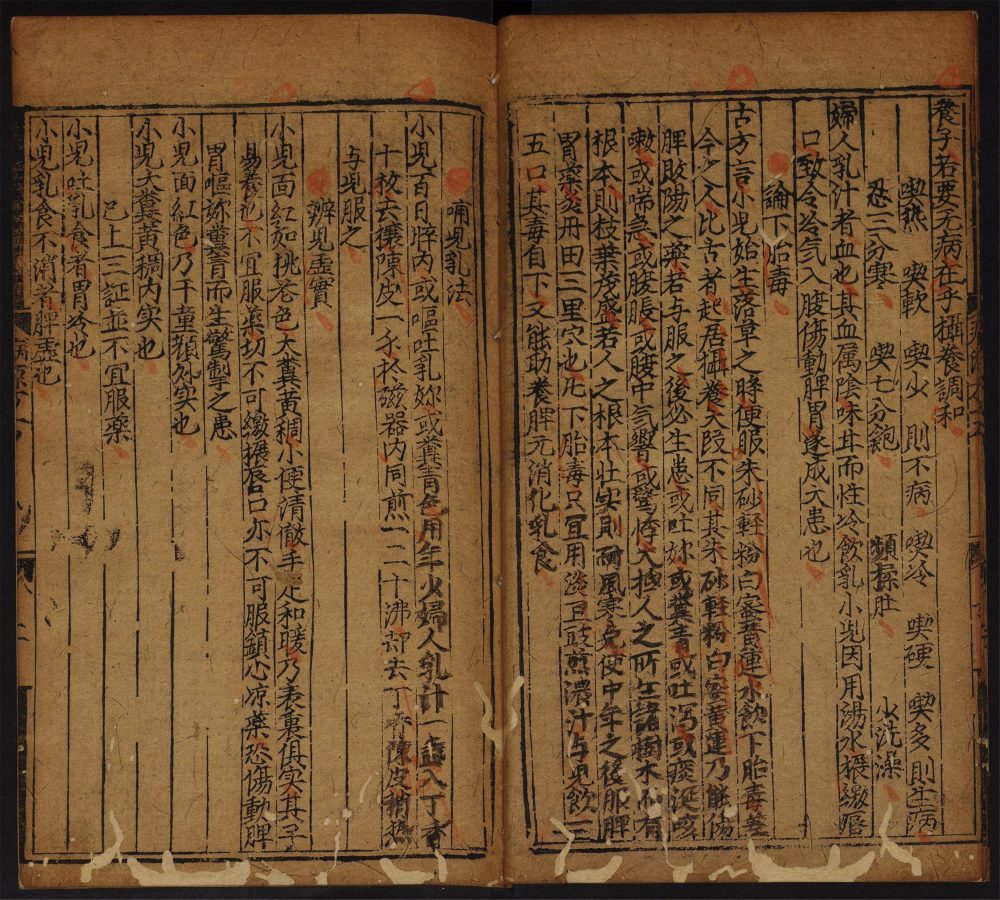 養子若要无病在乎攝養調和
喫熱 喫軟 喫少 則不病 喫冷 喫硬 喫多 則生病
忍三分寒 喫七分飽 頻揉肚 少洗澡
婦人乳汁者血也其血属陰味甘而性冷飲乳小児因用湯水攪繳唇
口致令冷氣入腹傷動脾胃遂成大患也
論下胎毒
古方言小児始生落草之時便服朱砂軽粉白蜜黄連水飲下胎毒盖
今之人比古者起居攝養大段不同其朱砂軽粉白蜜黄連乃能傷
脾敗陽之藥若与服之後必生患或吐妳或糞青或吐瀉或痰涎咳
嗽或喘急或腹脹或腹中气響或驚悸大抵人之所生諸樹木而有
根本則枝葉茂盛若人之根本壮实則耐風寒免使中年之後服脾
胃藥灸丹田三里穴也凢下胎毒只宜用淡豆豉煎濃汁与児飲三
五口其毒自下又能助養脾元消化乳食
哺児乳法
小児百日晬内或嘔吐乳妳或糞青色用年少婦人乳汁一盞入丁香
十枚去穰陳皮一分於磁器内同煎一二十沸却去丁香陳皮稍热
与児服之
辨児虛實
小児面紅如挑花色大糞黄稠小便清澈手足和暖乃表裏俱实其子
易養也不宜服藥切不可繳攪唇口亦不可服鎮心凉藥恐傷動脾
胃嘔妳糞青而生驚掣之患
小児面紅色乃干童顔外实也
小児大糞黄稠内实也
已上三証並不宜服藥
小児吐乳食者胃冷也
小児乳食不消者脾虛也